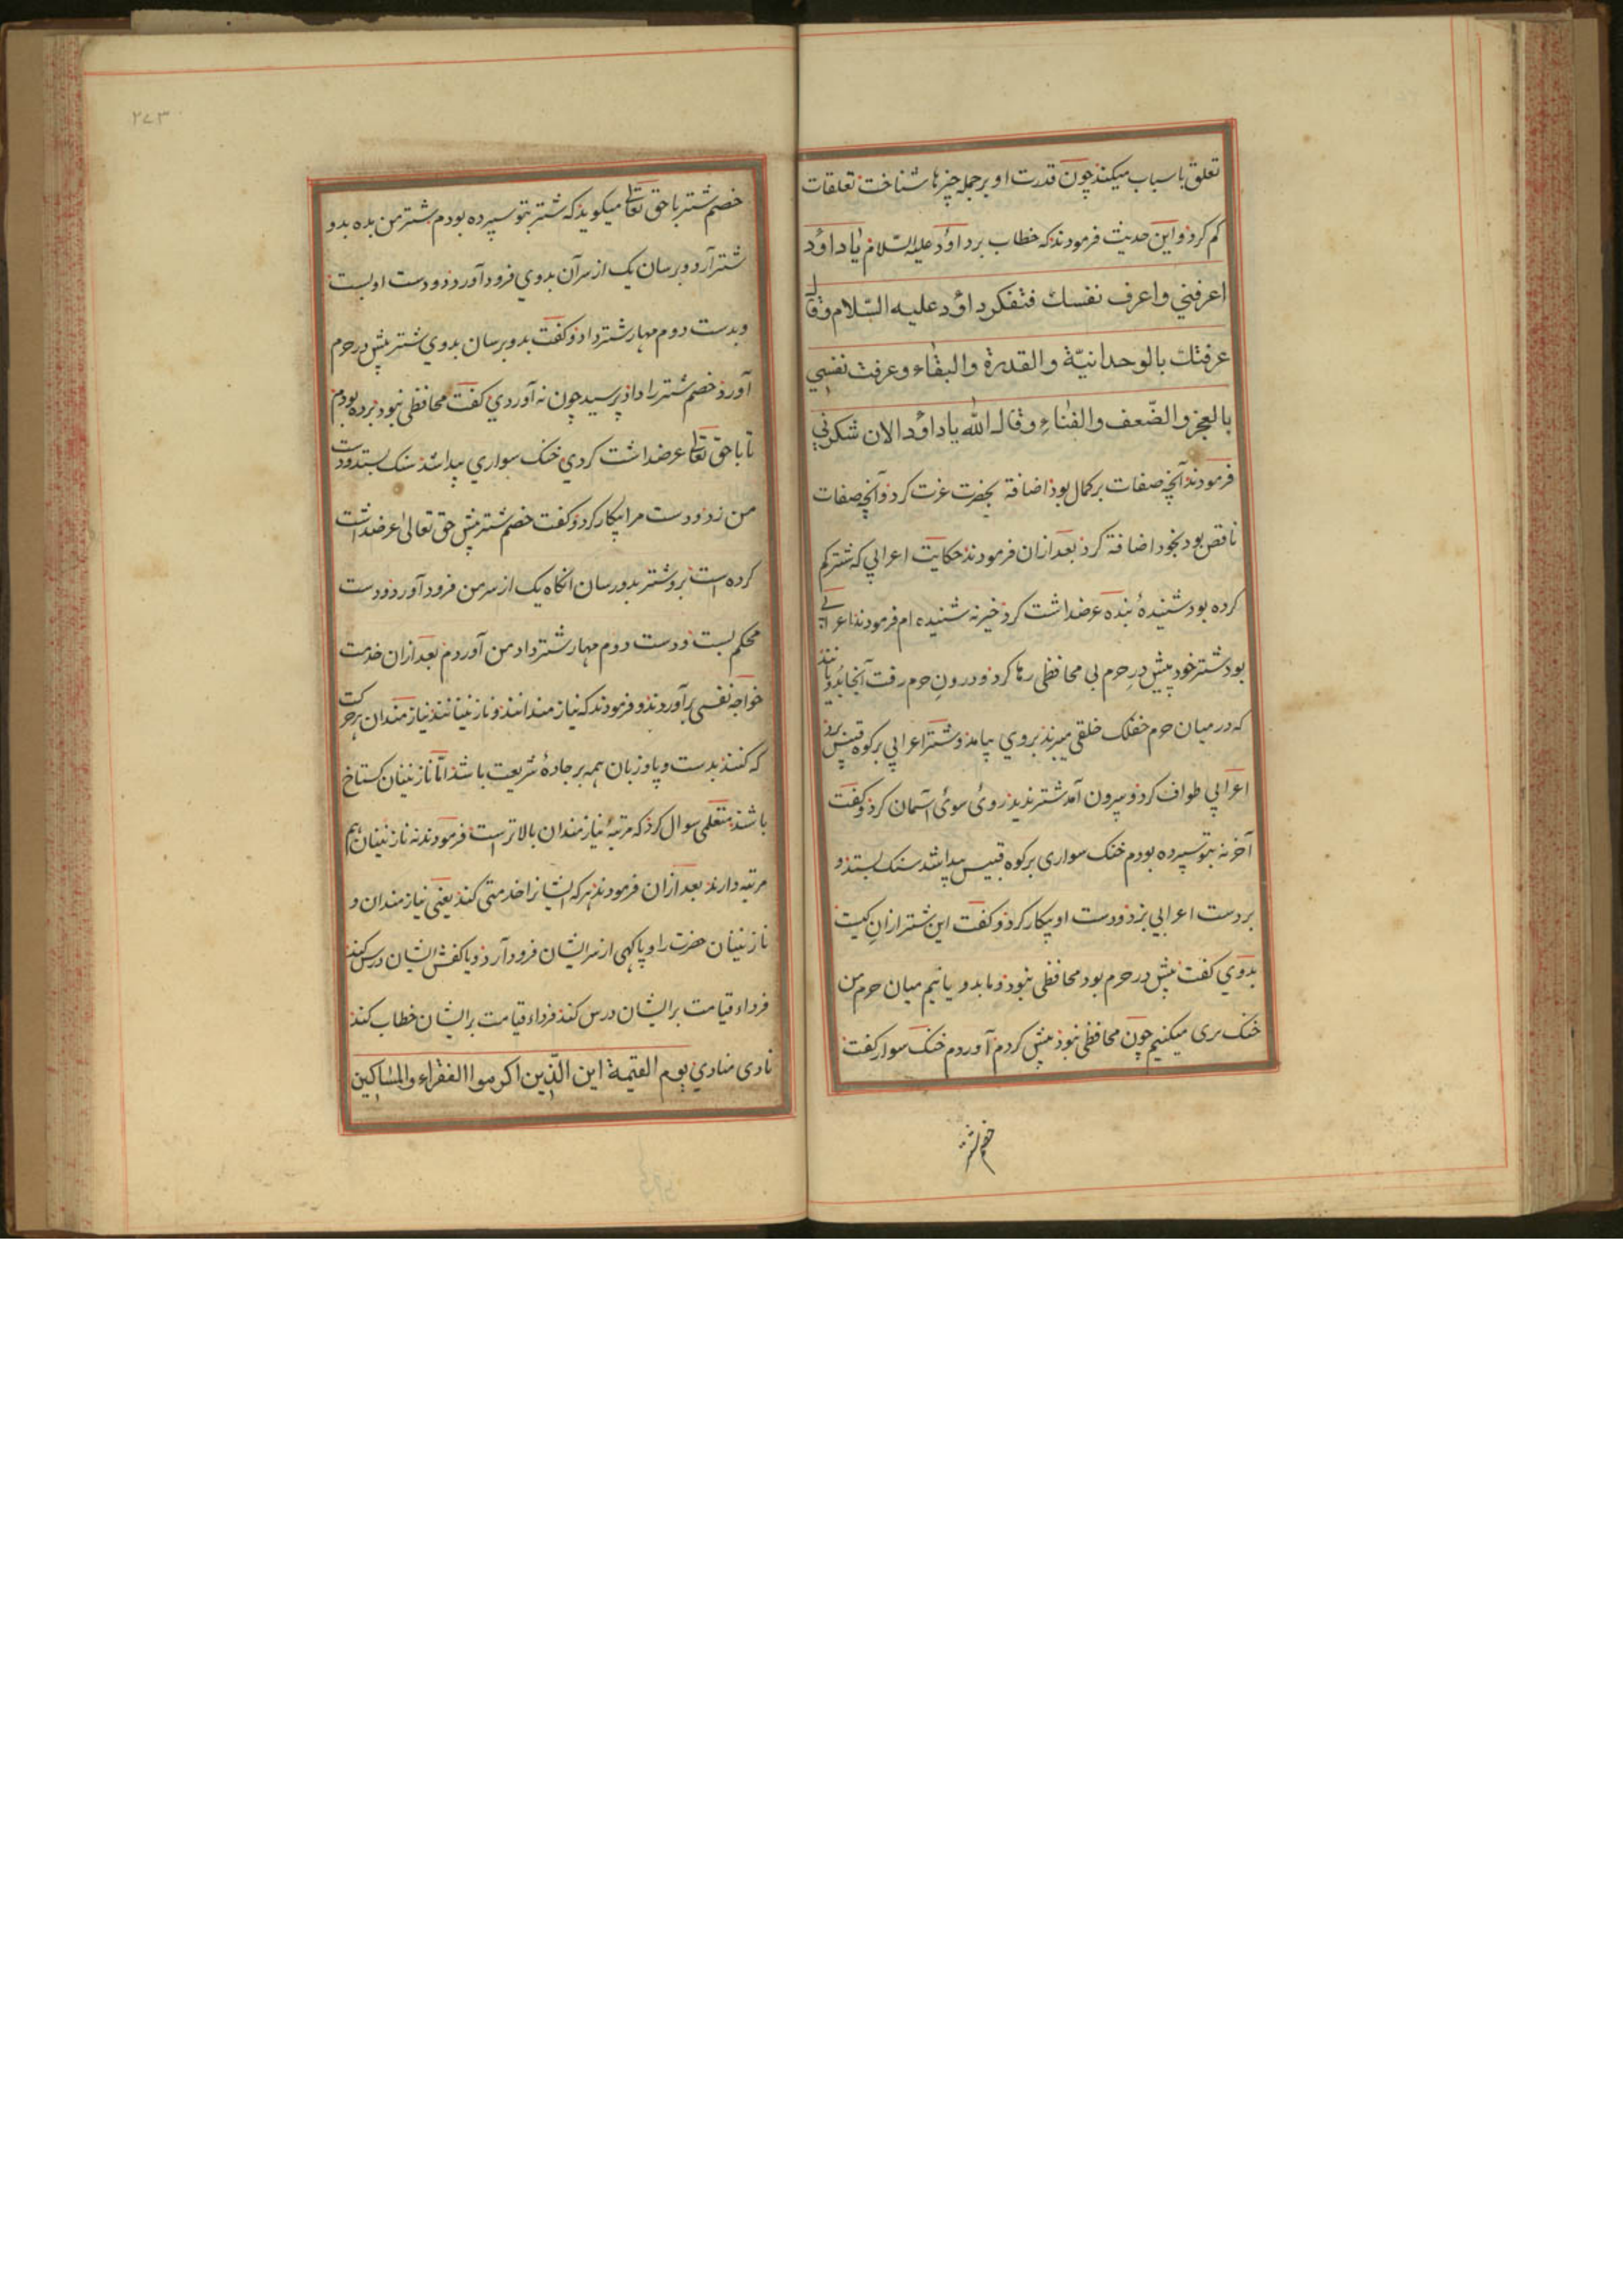 تعلق باسباب میکند چون قدرت او بر جمله چیزها شناخت تعلقات
کم کرد و این حدیث فرمودند که خطاب بر داؤد علیه السّلام یا داؤد
اعرفني واعرف نفسك فتفكر داؤد عليه السّلام وقال
عرفتك بالوحدانيّة والقدرة والبقاء وعرفت نفسي
بالعجز والضّعف والفناء وقال الله يا داؤد الان شكرتني
فرمودند آنچه صفات بر کمال بود اضافة بحضرت عزت کرد و آنچه صفات
ناقص بود بخود اضافة کرد بعد ازان فرمودند حکایت اعرابي که شتر کم
کرده بود شنیدهٔ بنده عرضداشت کرد خیر نه شنیده ام فرمودند اعرابي
بود شتر خود پیش درِ حرم بی محافظی رها کرد و درونِ حرم رفت آنجا بدویانند
که در میان حرم خلقی میبرند بروي بیامد و شتر اعرابي بر کوه قبیس برد
اعرابي طواف کرد و بیرون آمد شتر ندید روی سوئ آسمان کرد و کفت
آخر نه بتو سپرده بودم خنک سواری بر کوه قبیس پیدا شد سنک بستد و
بر دست اعرابي بزد و دست او بیکار کرد و کفت این شتر ازانِ کیست
بدوي کفت پیش در حرم بود محافظی نبود و ما بدویانیم میان حرم من
خنک بری میکنیم چون محافظی نبود پیش کردم آوردم خنک سوار کفت
خصم شتر
۲۷۳
خصم شتر با حق تعالی میکوید که شتر بتو سپرده بودم شتر من بده بدو
شتر آرد و برسان یک از سر آن بدوي فرود آورد و دست او بست
و بدست دوم مهار شتر داد و کفت بدو برسان بدوي شتر پیش در حرم
آورد خصم شتر را داد پرسید چون نه آوردي کفت محافظی نبود برده بودم
تا با حق تعالی عرضداشت کردي خنک سواري پیدا شد سنک بستد و دست
من زد و دست مرا بیکار کرد و کفت خصم شتر پیش حق تعالی عرضداشت
کرده است برو شتر بدو رسان انکاه یک از سر من فرود آورد و دست
محکم بست و دست دوم مهار شتر داد من آوردم بعد ازان خدمت
خواجه نفسی برآوردند و فرمودند که نیازمندانند و نازنینانند نیازمندان هر حرکت
که کنند بدست و پا و زبان همه بر جادهٔ شریعت باشد امّا نازنینان کستاخ
باشند متعلمی سوال کرد که مرتبهٔ نیازمندان بالاتر است فرمودند نه نازنینان هم
مرتبه دارند بعد ازان فرمودند هر که ایشانرا خدمتی کند یعنی نیازمندان و
نازنینان حضرت را و یا کهی از سر ایشان فرود آرد و یا کفش ایشان درس کند
فرداء قیامت بر ایشان درس کند فرداء قیامت بر ایشان خطاب کند
نادى منادي يوم القيٰمة اين الّذين اكرموا الفقراء والمساكين